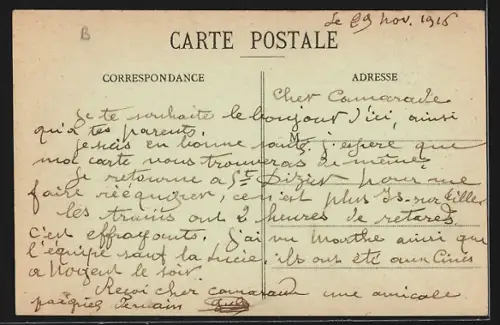 B
Le 29 nov. 1916
CARTE POSTALE
CORRESPONDANCE
ADRESSE
Cher Camarade
Je te souhaite le bonjour d'ici, ainsi
qu'à tes parents.
M
Je suis en bonne santé, j'espère que
ma carte vous trouveras de même.
Je retourne à St Dizier pour me
faire rééquiper, ce n'est plus Is-sur-Tille
les trains ont 2 heures de retard
c'est effrayant. J'ai vu Marthe ainsi que
l'équipe sauf la Lucie, ils ont été aux Cinés
a Nogent le soir.
Reçoi cher camarade une amicale